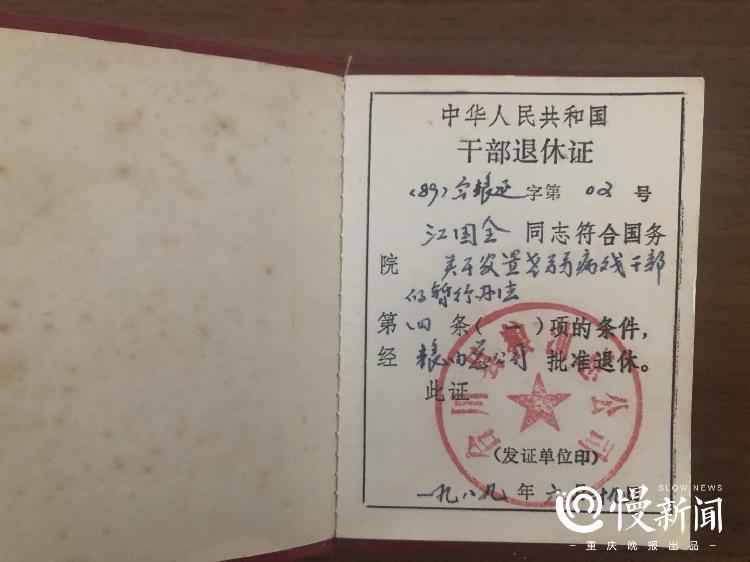 中华人民共和国
干部退休证
(89)合粮退 字第 02 号
江国全 同志符合国务
院 关于安置老弱病残干部
的暂行办法
第 四 条（ 一 ）项的条件，
经 粮油总公司 批准退休。
此证
(发证单位印)
一九八九 年 六 月
SLOW NEWS
慢新闻
重庆晚报出品